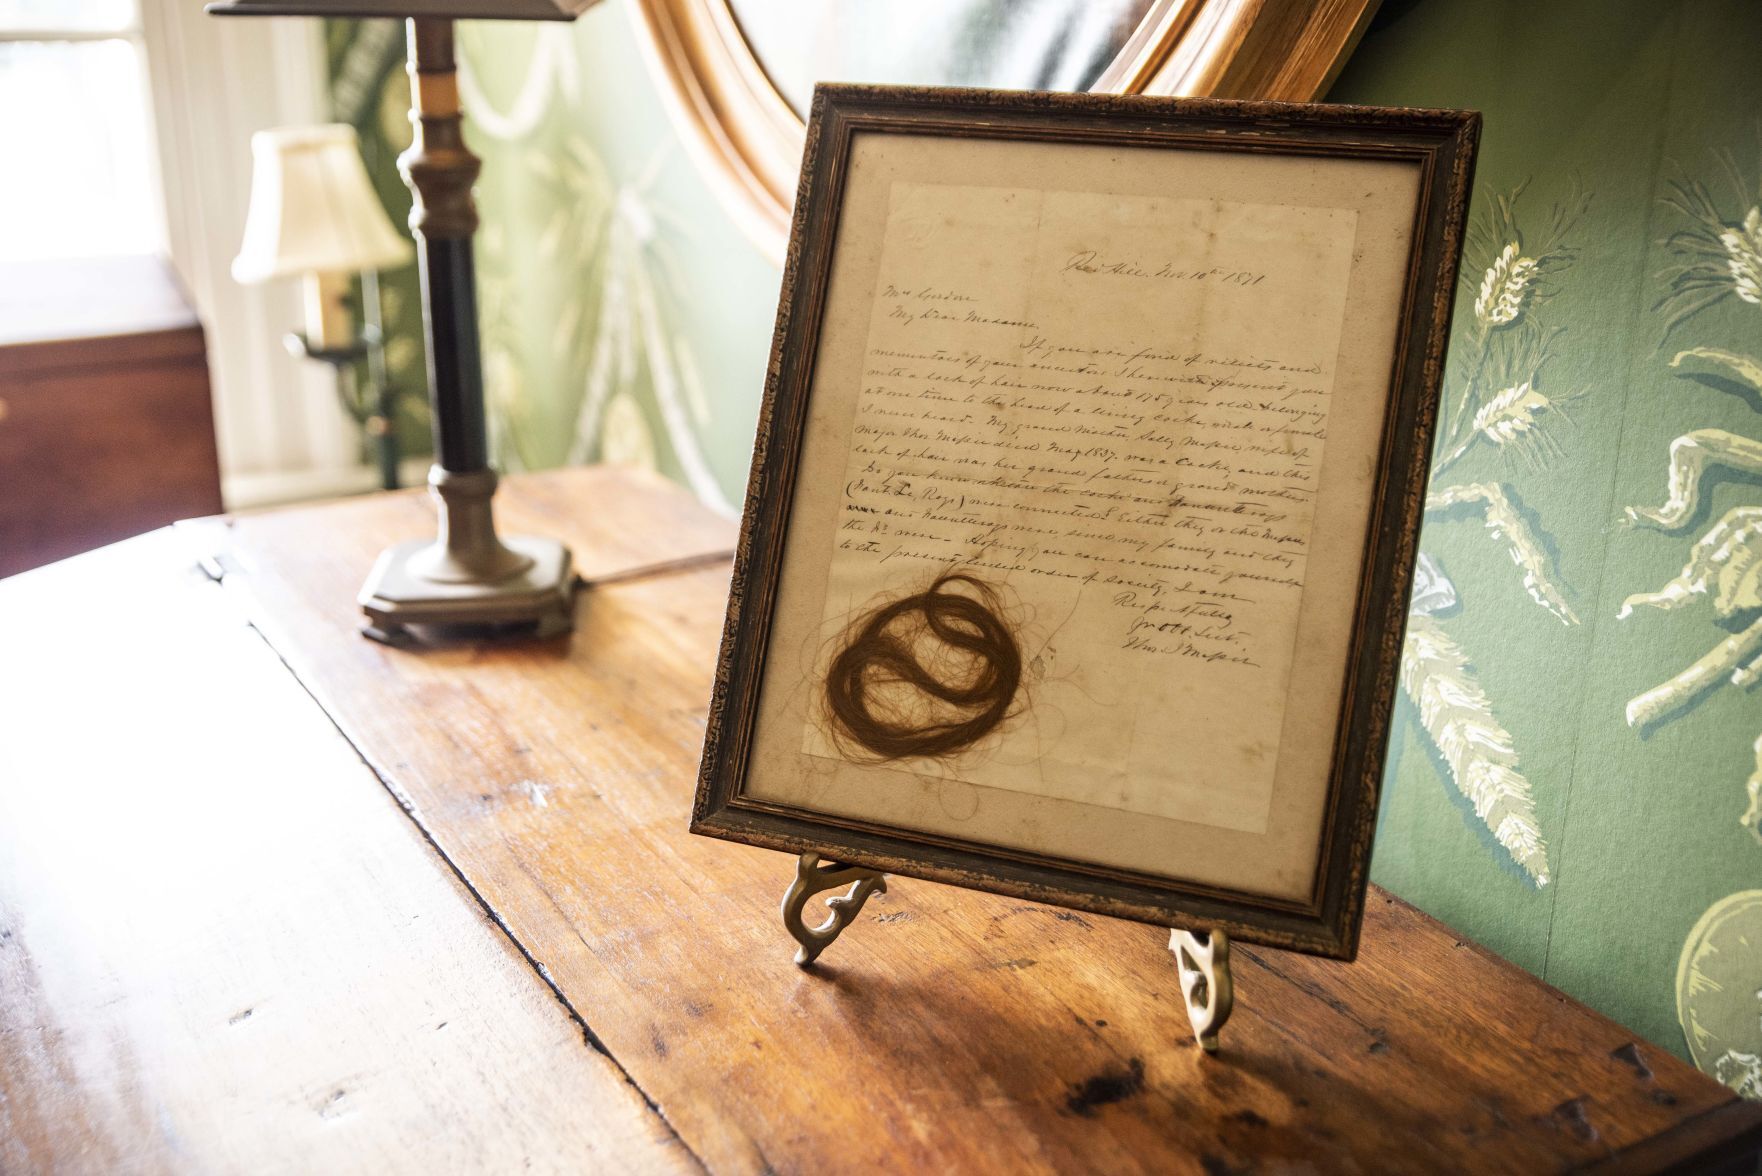 Red Hill. Nov. 10th 1871
Mrs Gordon
My Dear Madame,
If you are fond of relicts and
mementoes of your ancestors I herewith present you
with a lock of hair now about 175 years old & belonging
at one time to the head of a living Cocke, male or female
I never heard. My grand Mother, Sally Massie wife of
Major Thos Massie died May 1837. was a Cocke, and this
lock of hair was her grand father or grand mothers
Do you know whether the Cockes and
were connected? Either they or the Massies
and were, since my family and they
the Ds were - Hoping you can accomodate yourself
to the present order of Society, I am
Respectfully
Yr obt. Svt.
Thos J Massie